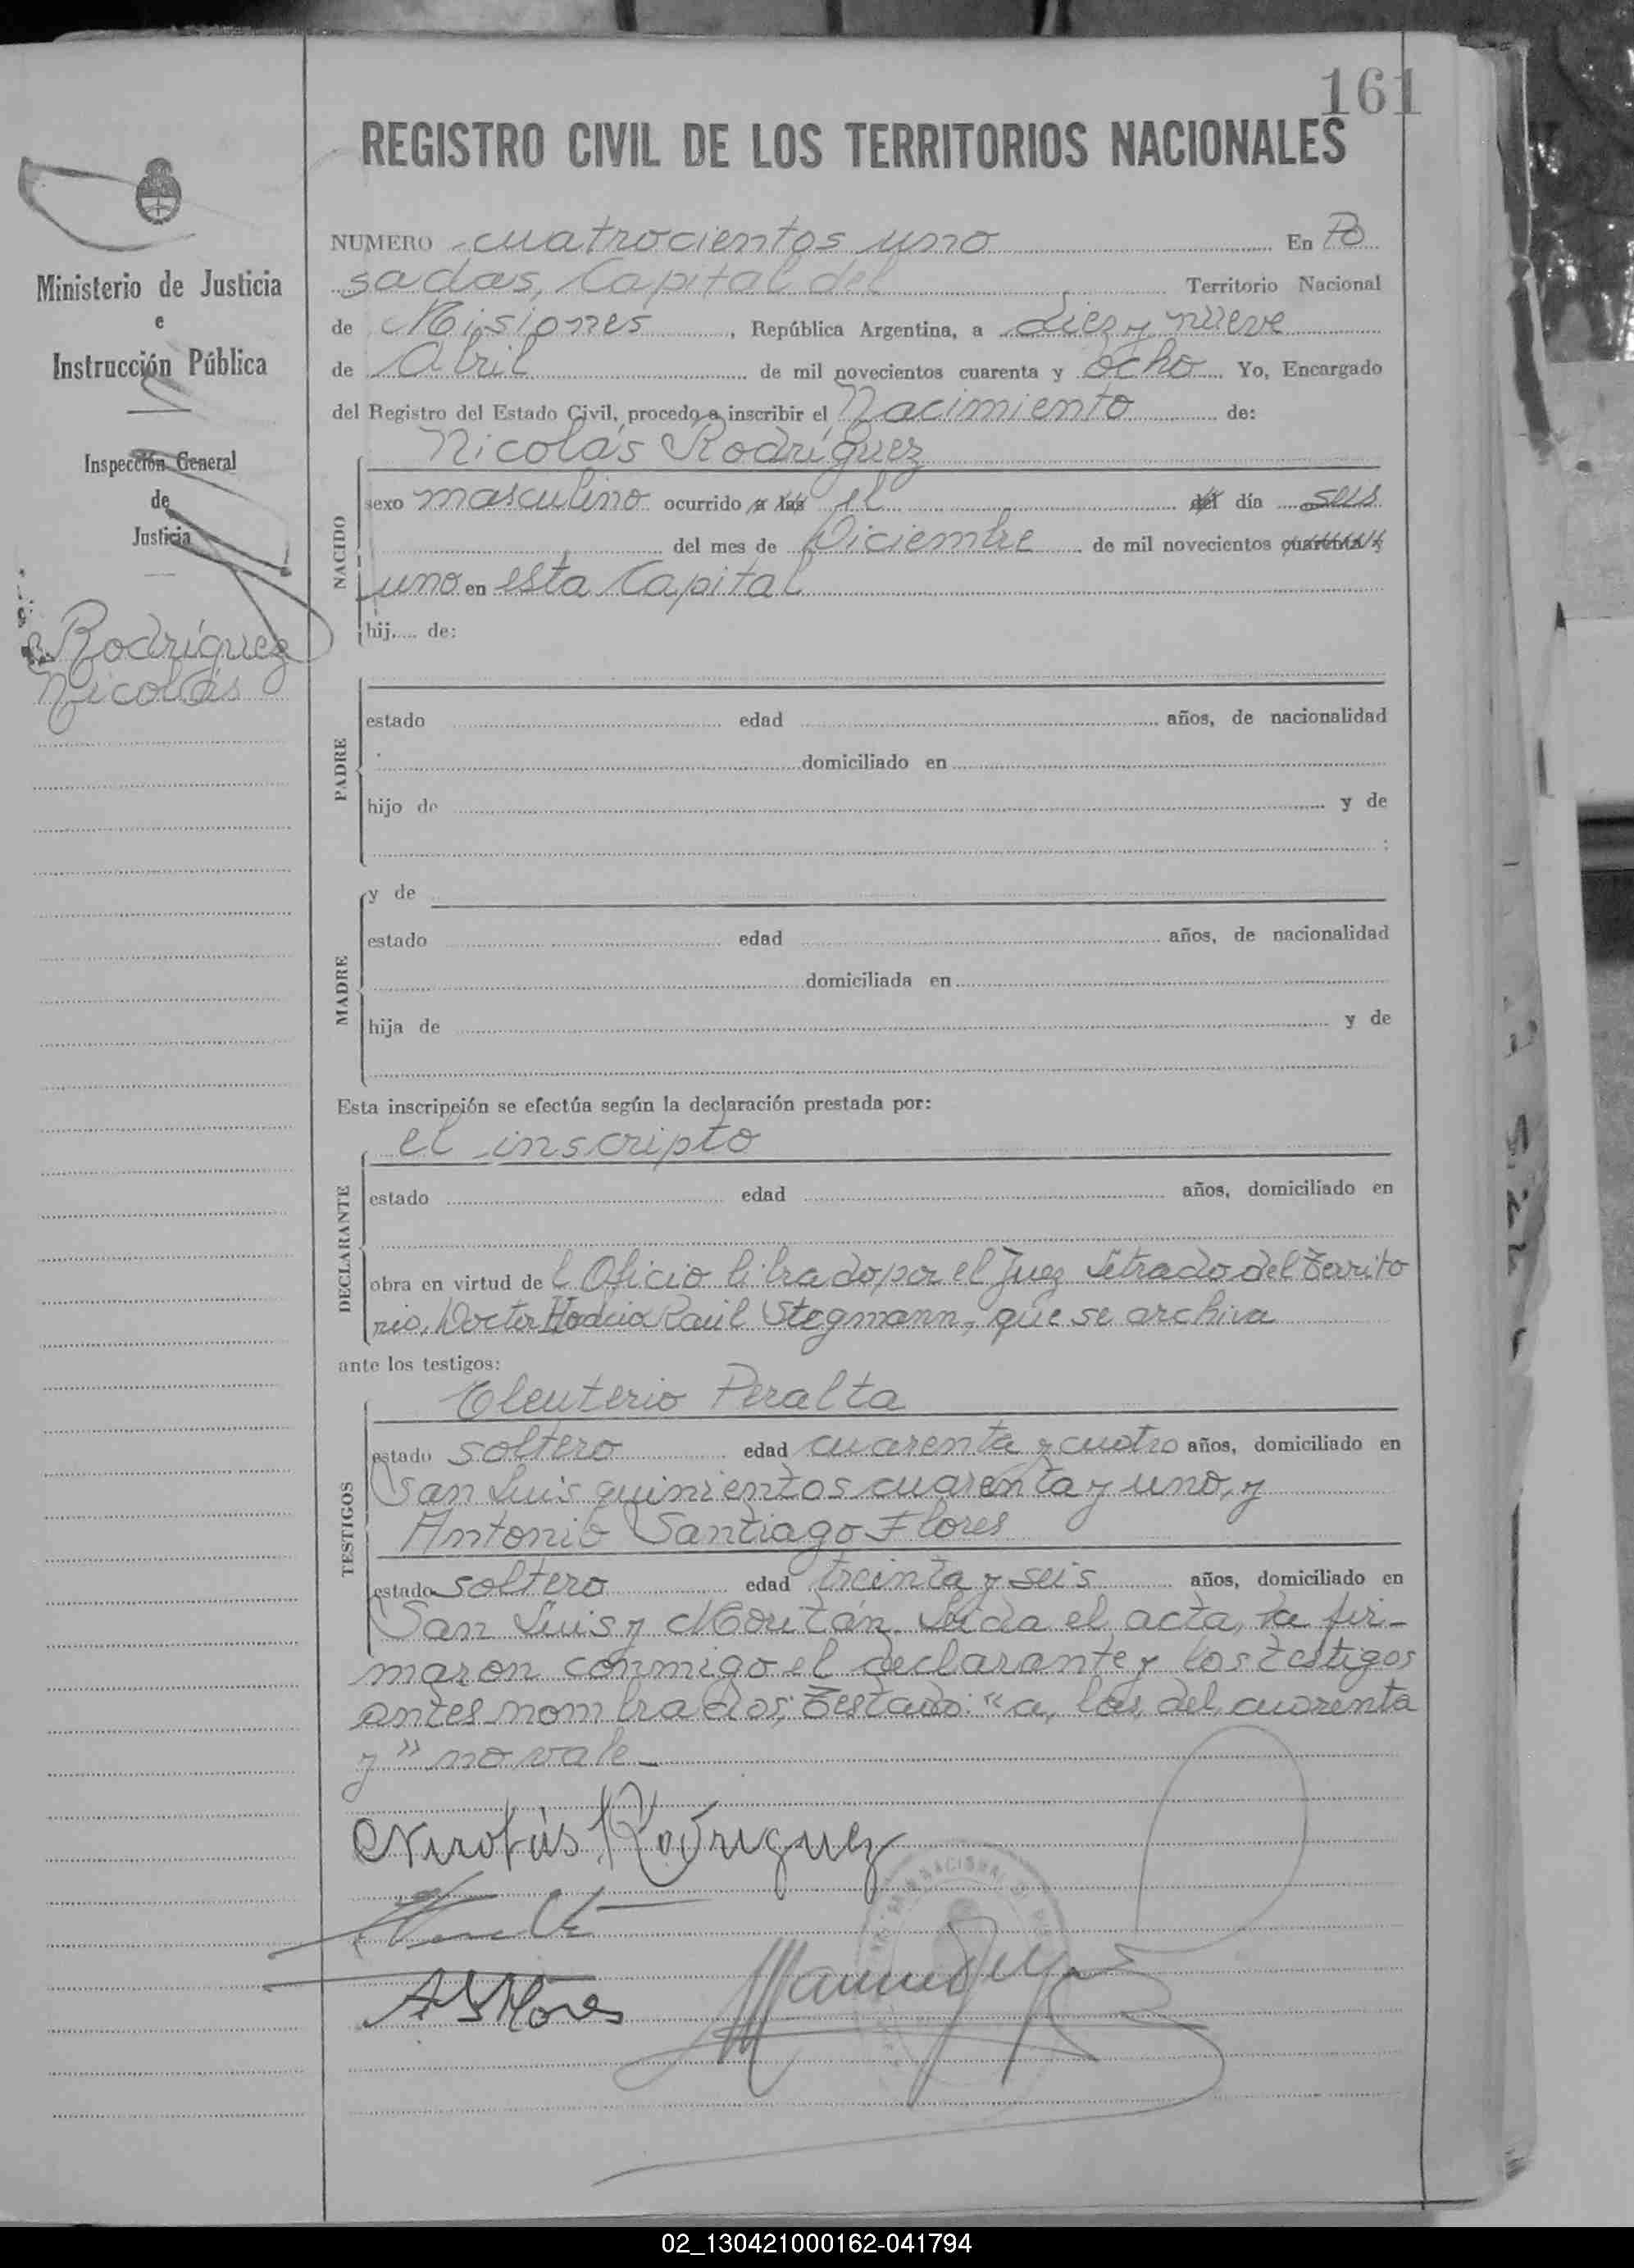 161
REGISTRO CIVIL DE LOS TERRITORIOS NACIONALES
Ministerio de Justicia
e
Instrucción Pública
Inspección General
de
Justicia
Rodríguez
Nicolás
NUMERO cuatrocientos uno En Po
sadas, Capital del Territorio Nacional
de Misiones, República Argentina, a diez y nueve
de Abril de mil novecientos cuarenta y ocho Yo, Encargado
del Registro del Estado Civil, procedo a inscribir el Nacimiento de:
Nicolás Rodríguez
NACIDO
sexo masculino ocurrido a las el del día seis
del mes de Diciembre de mil novecientos cuarenta y
uno en esta Capital
hij.... de:
PADRE
estado edad años, de nacionalidad
domiciliado en
hijo de y de
:
MADRE
y de
estado edad años, de nacionalidad
domiciliada en
hija de y de
Esta inscripción se efectúa según la declaración prestada por:
el inscripto
DECLARANTE
estado edad años, domiciliado en
obra en virtud del Oficio librado por el Juez Letrado del Territo
rio, Doctor Horacio Raúl Stegmann, que se archiva
ante los testigos:
Eleuterio Peralta
TESTIGOS
estado soltero edad cuarenta y cuatro años, domiciliado en
San Luis quinientos cuarenta y uno, y
Antonio Santiago Flores
estado soltero edad treinta y seis años, domiciliado en
San Luis y Moritán. Leída el acta, la fir-
maron conmigo el declarante y los testigos
antes nombrados; Testado: "a, las, del, cuarenta
y" no vale.-
Nicolás Rodriguez
A S Flores
02_130421000162-041794